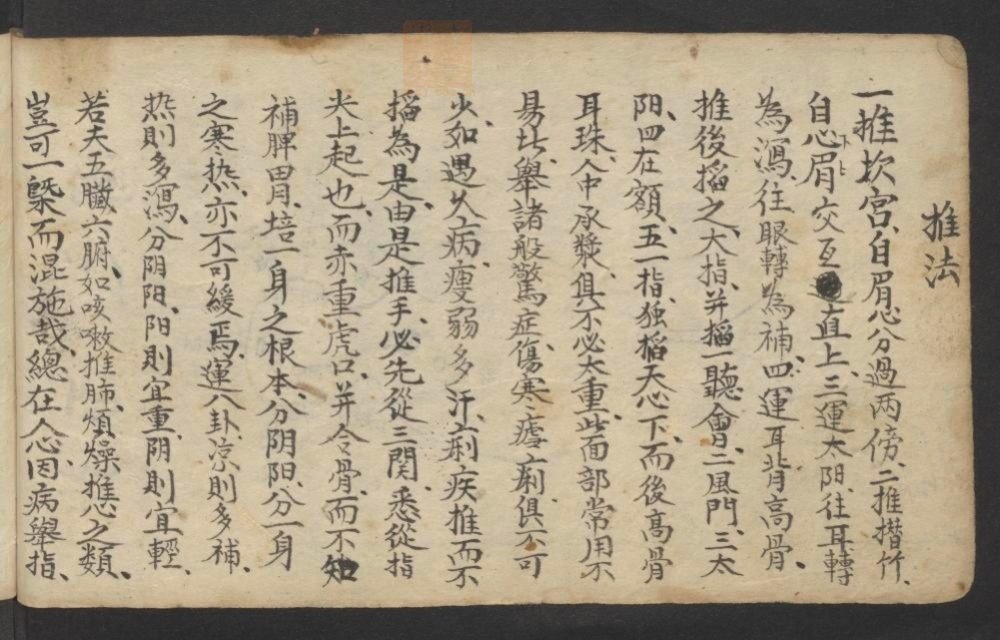 推法
一推坎宮、自眉心分過两傍、二推攢竹、
自心眉交互直上、三運太阳、往耳轉
為瀉、往眼轉為補、四運耳背高骨、
推後搯之、大指、并搯一聽會、二風門、三太
阳、四在額、五一指、独搯天心下、而後高骨
耳珠、人中承漿、俱不必太重、此面部常用不
易比、舉諸般驚症、傷寒瘧痢、俱不可
少、如遇久病瘦弱多汗、痢疾推而不
搯為是、由是推手、必先從三関、悉從指
尖上起也、而赤重虎口、并合骨、而不知
補脾胃、培一身之根本、分阴阳、分一身
之寒热、亦不可緩焉、運八卦、凉則多補、
热則多瀉、分阴阳、阳則宜重、阴則宜輕、
若夫五臟六腑、如咳嗽推肺、煩燥推心之類、
豈可一槩而混施哉、總在人心因病舉指、